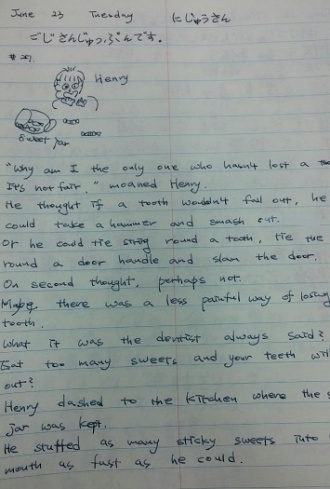 June 23 Tuesday にじゅうさん
ごじさんじゅっぷんです。
Henry
Sweet jar
"Why am I the only one who hasn't lost a
It's not fair." moaned Henry.
He thought if a tooth wouldn't fall out, he
could take a hammer and smash out.
Or he could tie string round a tooth, tie the
round a door handle and slam the door.
On second thought, perhaps not.
Maybe there was a less painful way of losing
tooth.
What it was the dentist always said?
Eat too many sweets and your teeth will
out?
Henry dashed to the kitchen where the
jar was kept.
He stuffed as many sticky sweets into
mouth as fast as he could.